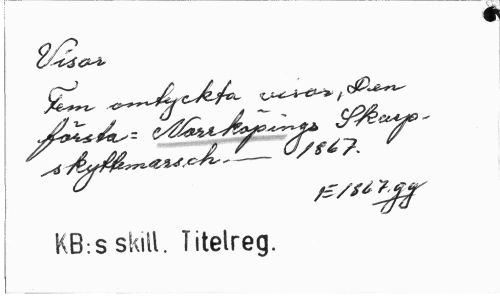 Visor
Fem omtyckta visor, Den
första = Norrköpings Skarp-
skyttemarsch. — 1867.
E 1867.gg
KB:s skill. Titelreg.